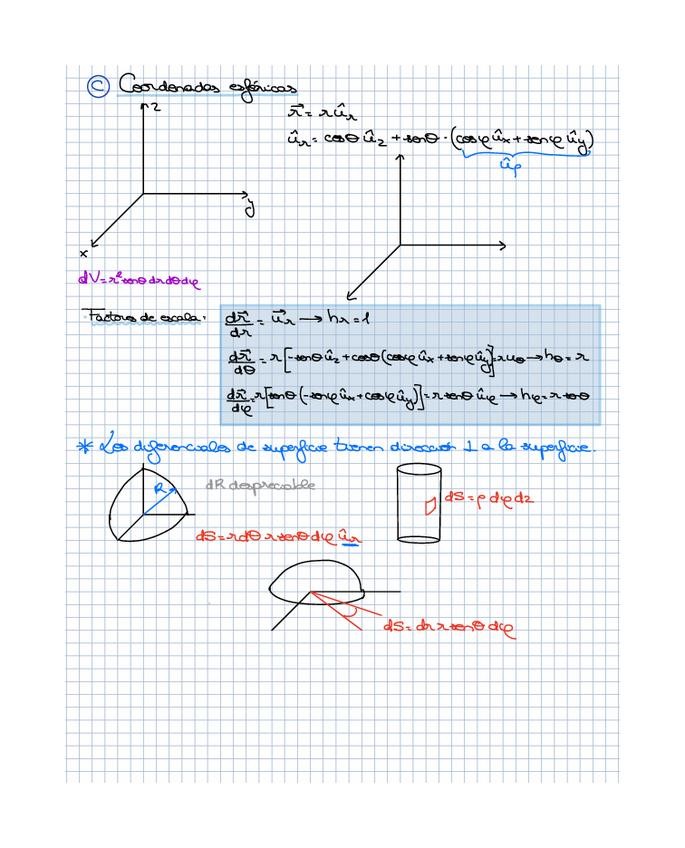 C Coordenadas esféricas
z
y
x
r⃗ = r û_r
û_r = cosθ û_z + senθ · (cosφ û_x + senφ û_y)
û_ρ
dV = r² senθ dr dθ dφ
Factores de escala:
dr⃗/dr = u⃗_r → h_r = 1
dr⃗/dθ = r [-senθ û_z + cosθ (cosφ û_x + senφ û_y)] = r u_θ → h_θ = r
dr⃗/dφ = r [senθ (-senφ û_x + cosφ û_y)] = r senθ û_φ → h_φ = r senθ
* Los diferenciales de superficie tienen dirección ⊥ a la superficie.
R
dR despreciable
dS = r dθ r senθ dφ û_r
dS = ρ dφ dz
dS = dr r senθ dφ